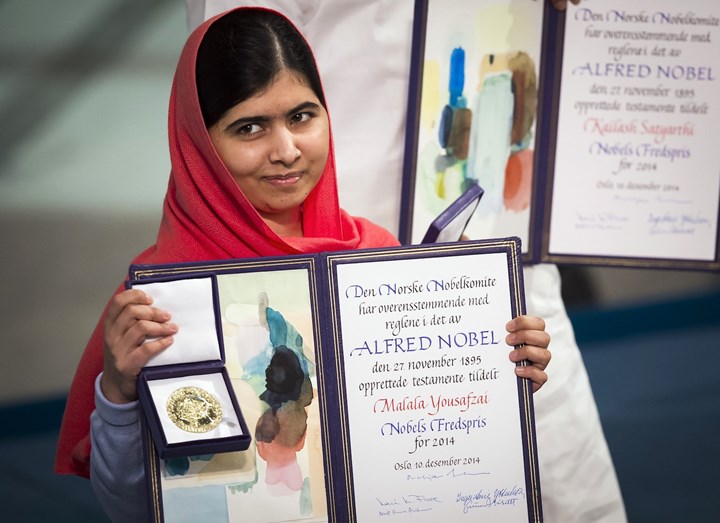 Den Norske Nobelkomite
har overensstemmende med
reglene i det av
ALFRED NOBEL
den 27. november 1895
opprettede testamente tildelt
Kailash Satyarthi
Nobels Fredspris
for 2014
Oslo, 10. desember 2014
Den Norske Nobelkomite
har overensstemmende med
reglene i det av
ALFRED NOBEL
den 27. november 1895
opprettede testamente tildelt
Malala Yousafzai
Nobels Fredspris
for 2014
Oslo, 10. desember 2014